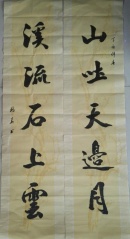 山吐天邊月
溪流石上雲